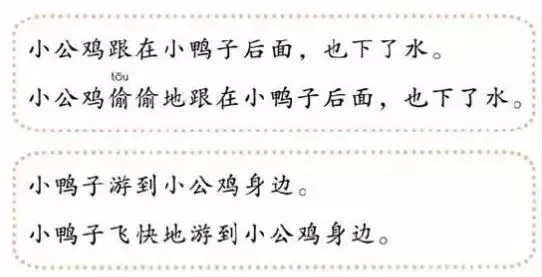 小公鸡跟在小鸭子后面，也下了水。
tōu
小公鸡偷偷地跟在小鸭子后面，也下了水。
小鸭子游到小公鸡身边。
小鸭子飞快地游到小公鸡身边。